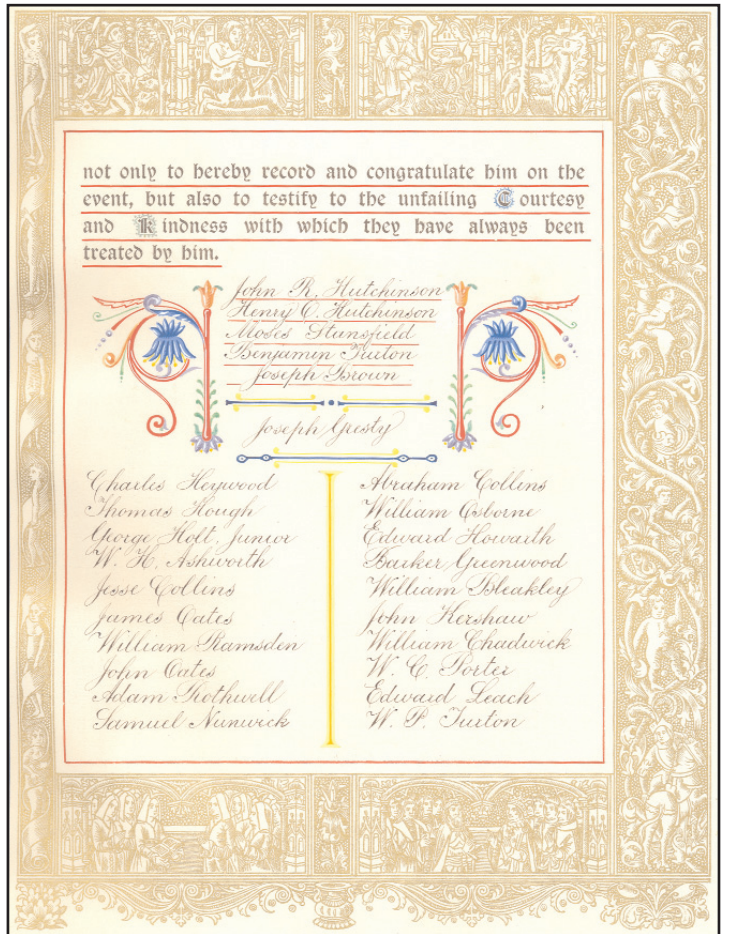 not only to hereby record and congratulate him on the
event, but also to testify to the unfailing Courtesy
and Kindness with which they have always been
treated by him.
John R. Hutchinson
Henry O. Hutchinson
Moses Stansfield
Benjamin Turton
Joseph Brown
Joseph Gristy
Charles Heywood
Thomas Hough
George Holt, Junior
W. H. Ashworth
Jesse Collins
James Oates
William Ramsden
John Oates
Adam Rothwell
Samuel Nunwick
Abraham Collins
William Osborne
Edward Howarth
Barker Greenwood
William Bleakley
John Kershaw
William Chadwick
W. C. Porter
Edward Leach
W. P. Turton